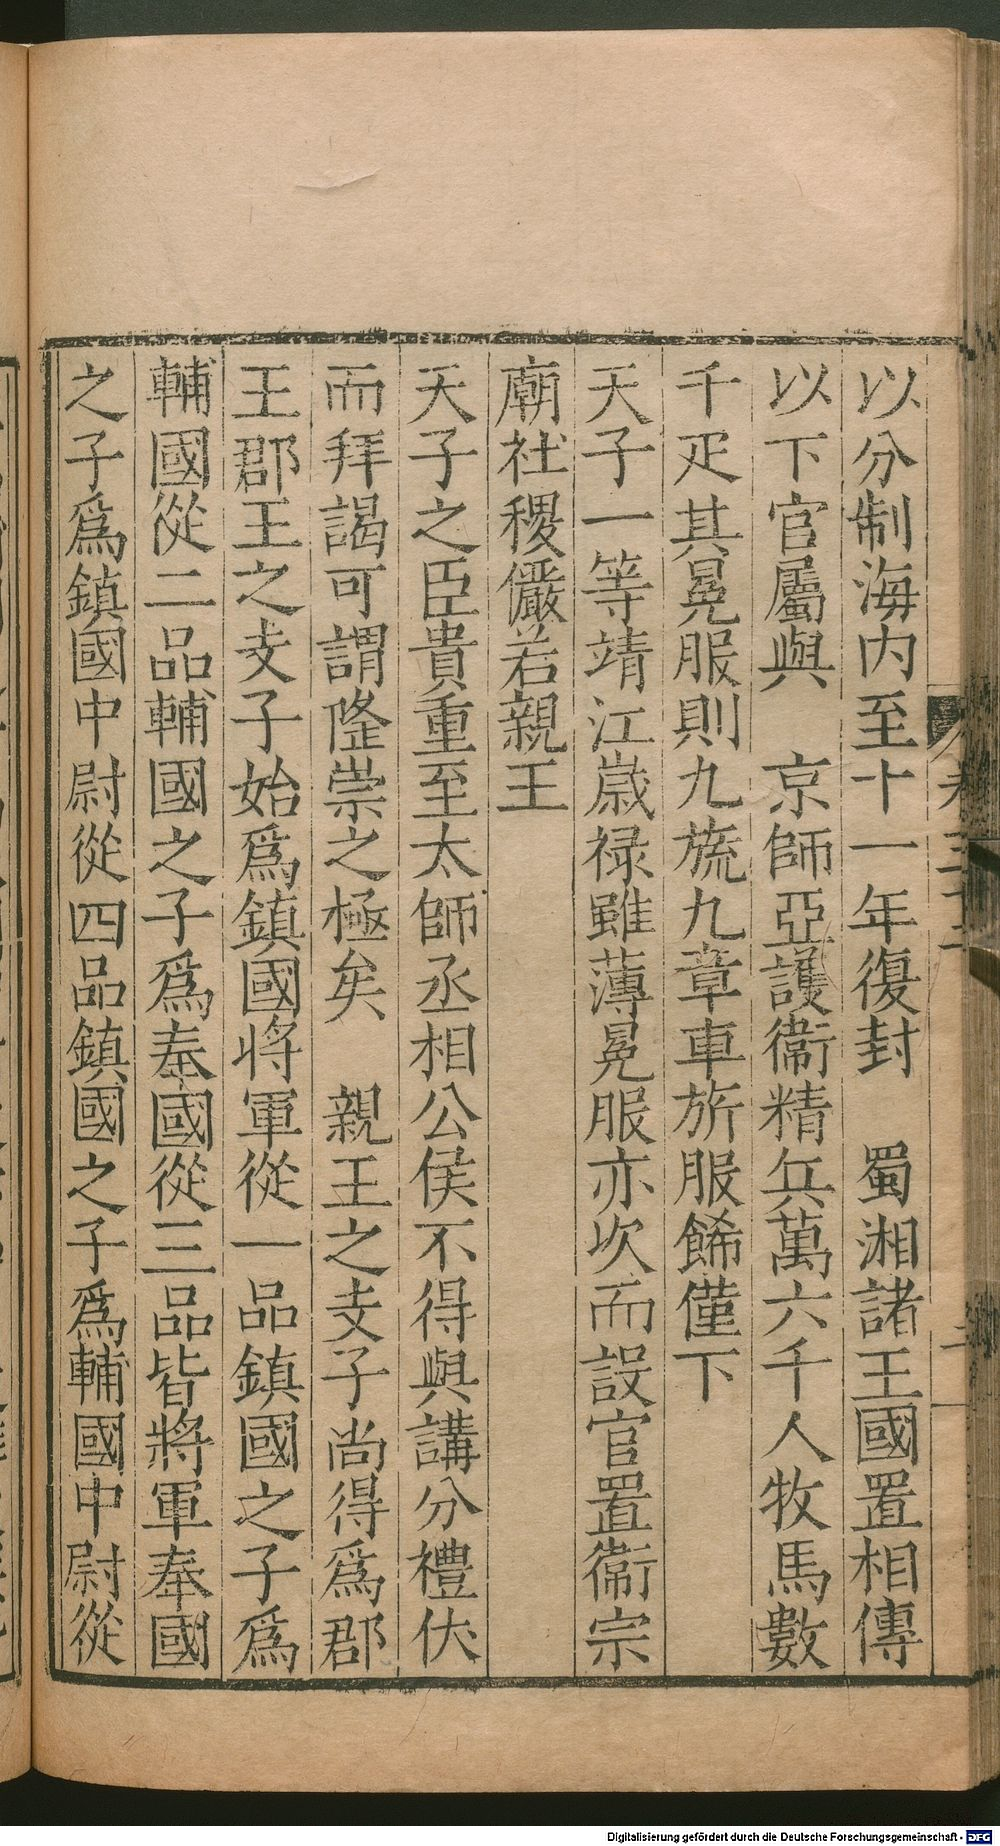 以分制海内至十一年復封　蜀湘諸王國置相傳
以下官屬與　京師亞護衞精兵萬六千人牧馬數
千疋其冕服則九旒九章車旂服餙僅下
天子一等靖江歳禄雖薄冕服亦次而設官置衞宗
廟社稷儼若親王
天子之臣貴重至太師丞相公侯不得與講分禮伏
而拜謁可謂隆崇之極矣　親王之支子尚得爲郡
王郡王之支子始爲鎮國将軍從一品鎮國之子爲
輔國從二品輔國之子爲奉國從三品皆將軍奉國
之子爲鎮國中尉從四品鎮國之子爲輔國中尉從
Digitalisierung gefördert durch die Deutsche Forschungsgemeinschaft - DFG